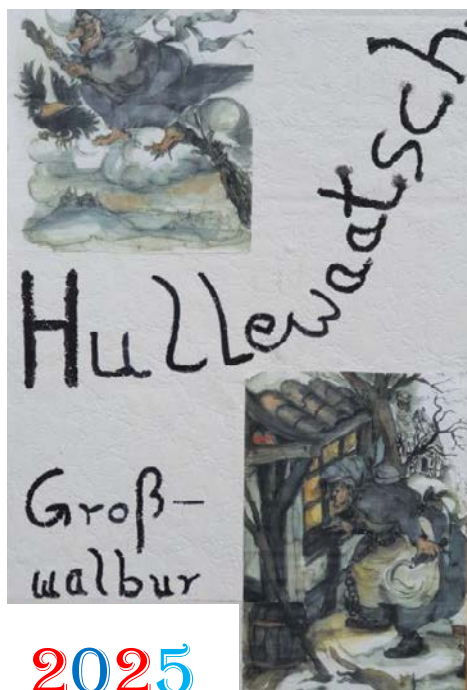 Hullewaatsch
Groß-
walbur
2025